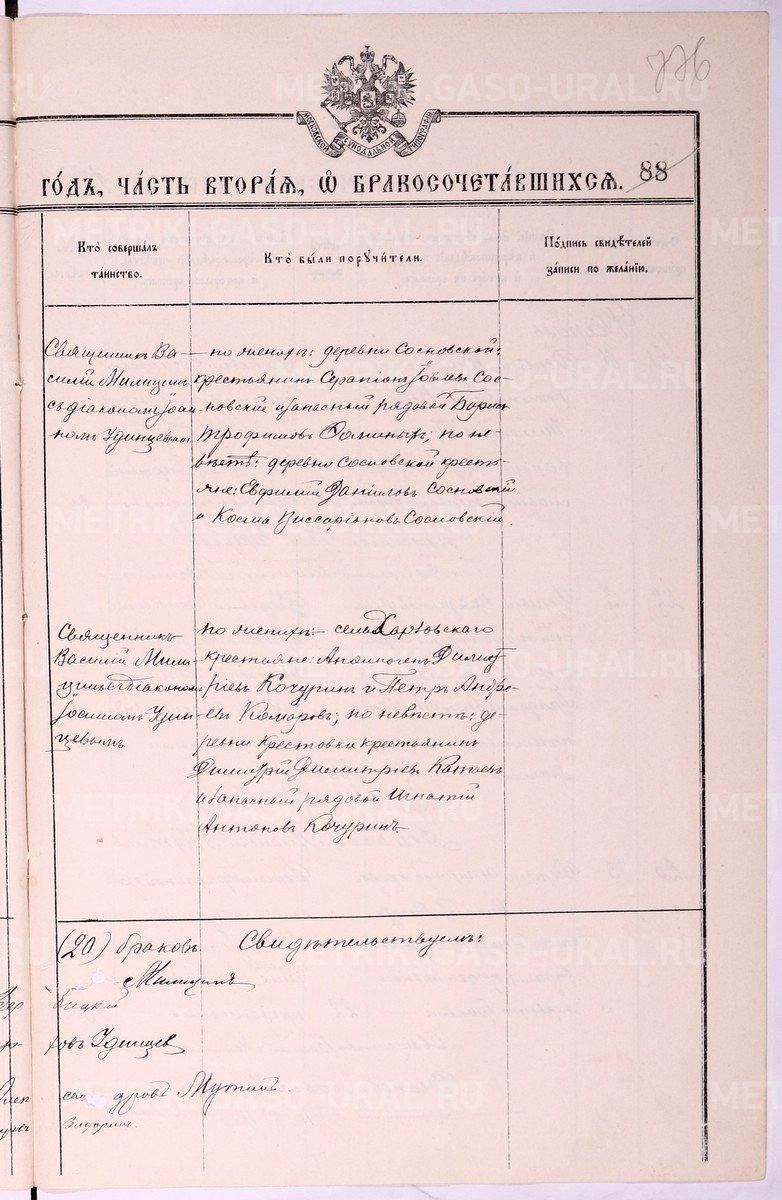 776
МОСКОВСКОЙ СѴНОДАЛЬНОЙ ТИПОГРАФІИ
ГО́ДЪ, ЧА́СТЬ ВТОРА́Я, Ѡ҆ БРАКОСОЧЕТА́ВШИХСЯ. 88
Кто̀ совершалъ
та́инство.
Кто̀ бы́ли порꙋчи́тели.
По́дпись свидѣ́телей
за́писи по жела́нїю.
Священникъ Ва-
силій Милицинъ
съ діакономъ Іоан
номъ Удинцевымъ
по жениxѣ: деревни Сосновской:
крестьянинъ Серапіонъ Іовлевъ Сос-
новскій и запасный рядовой Борисъ
Трофимовъ; по не-
вѣстѣ: деревни Сосновской кресть-
яне: Евфимій Даніиловъ Сосновскій
и Косма Виссаріоновъ Сосновскій.
Священникъ
Василій Мили
цинъ съ діакономъ
Іоанномъ Удин-
цевымъ
по женихѣ: села Харловскаго
крестьяне: Аѳиногенъ Димит
ріевъ Кочуринъ и Петръ Андре-
евъ Комаровъ; по невѣстѣ: де-
ревни Крестовки крестьянинъ
Димитрій Димитріевъ Катаевъ
и запасный рядовой Игнатій
Антоновъ Кочуринъ.
(20) браковъ Свидѣтельствуемъ:
Милицинъ
ицкій
ховъ Удинцев
сандровъ